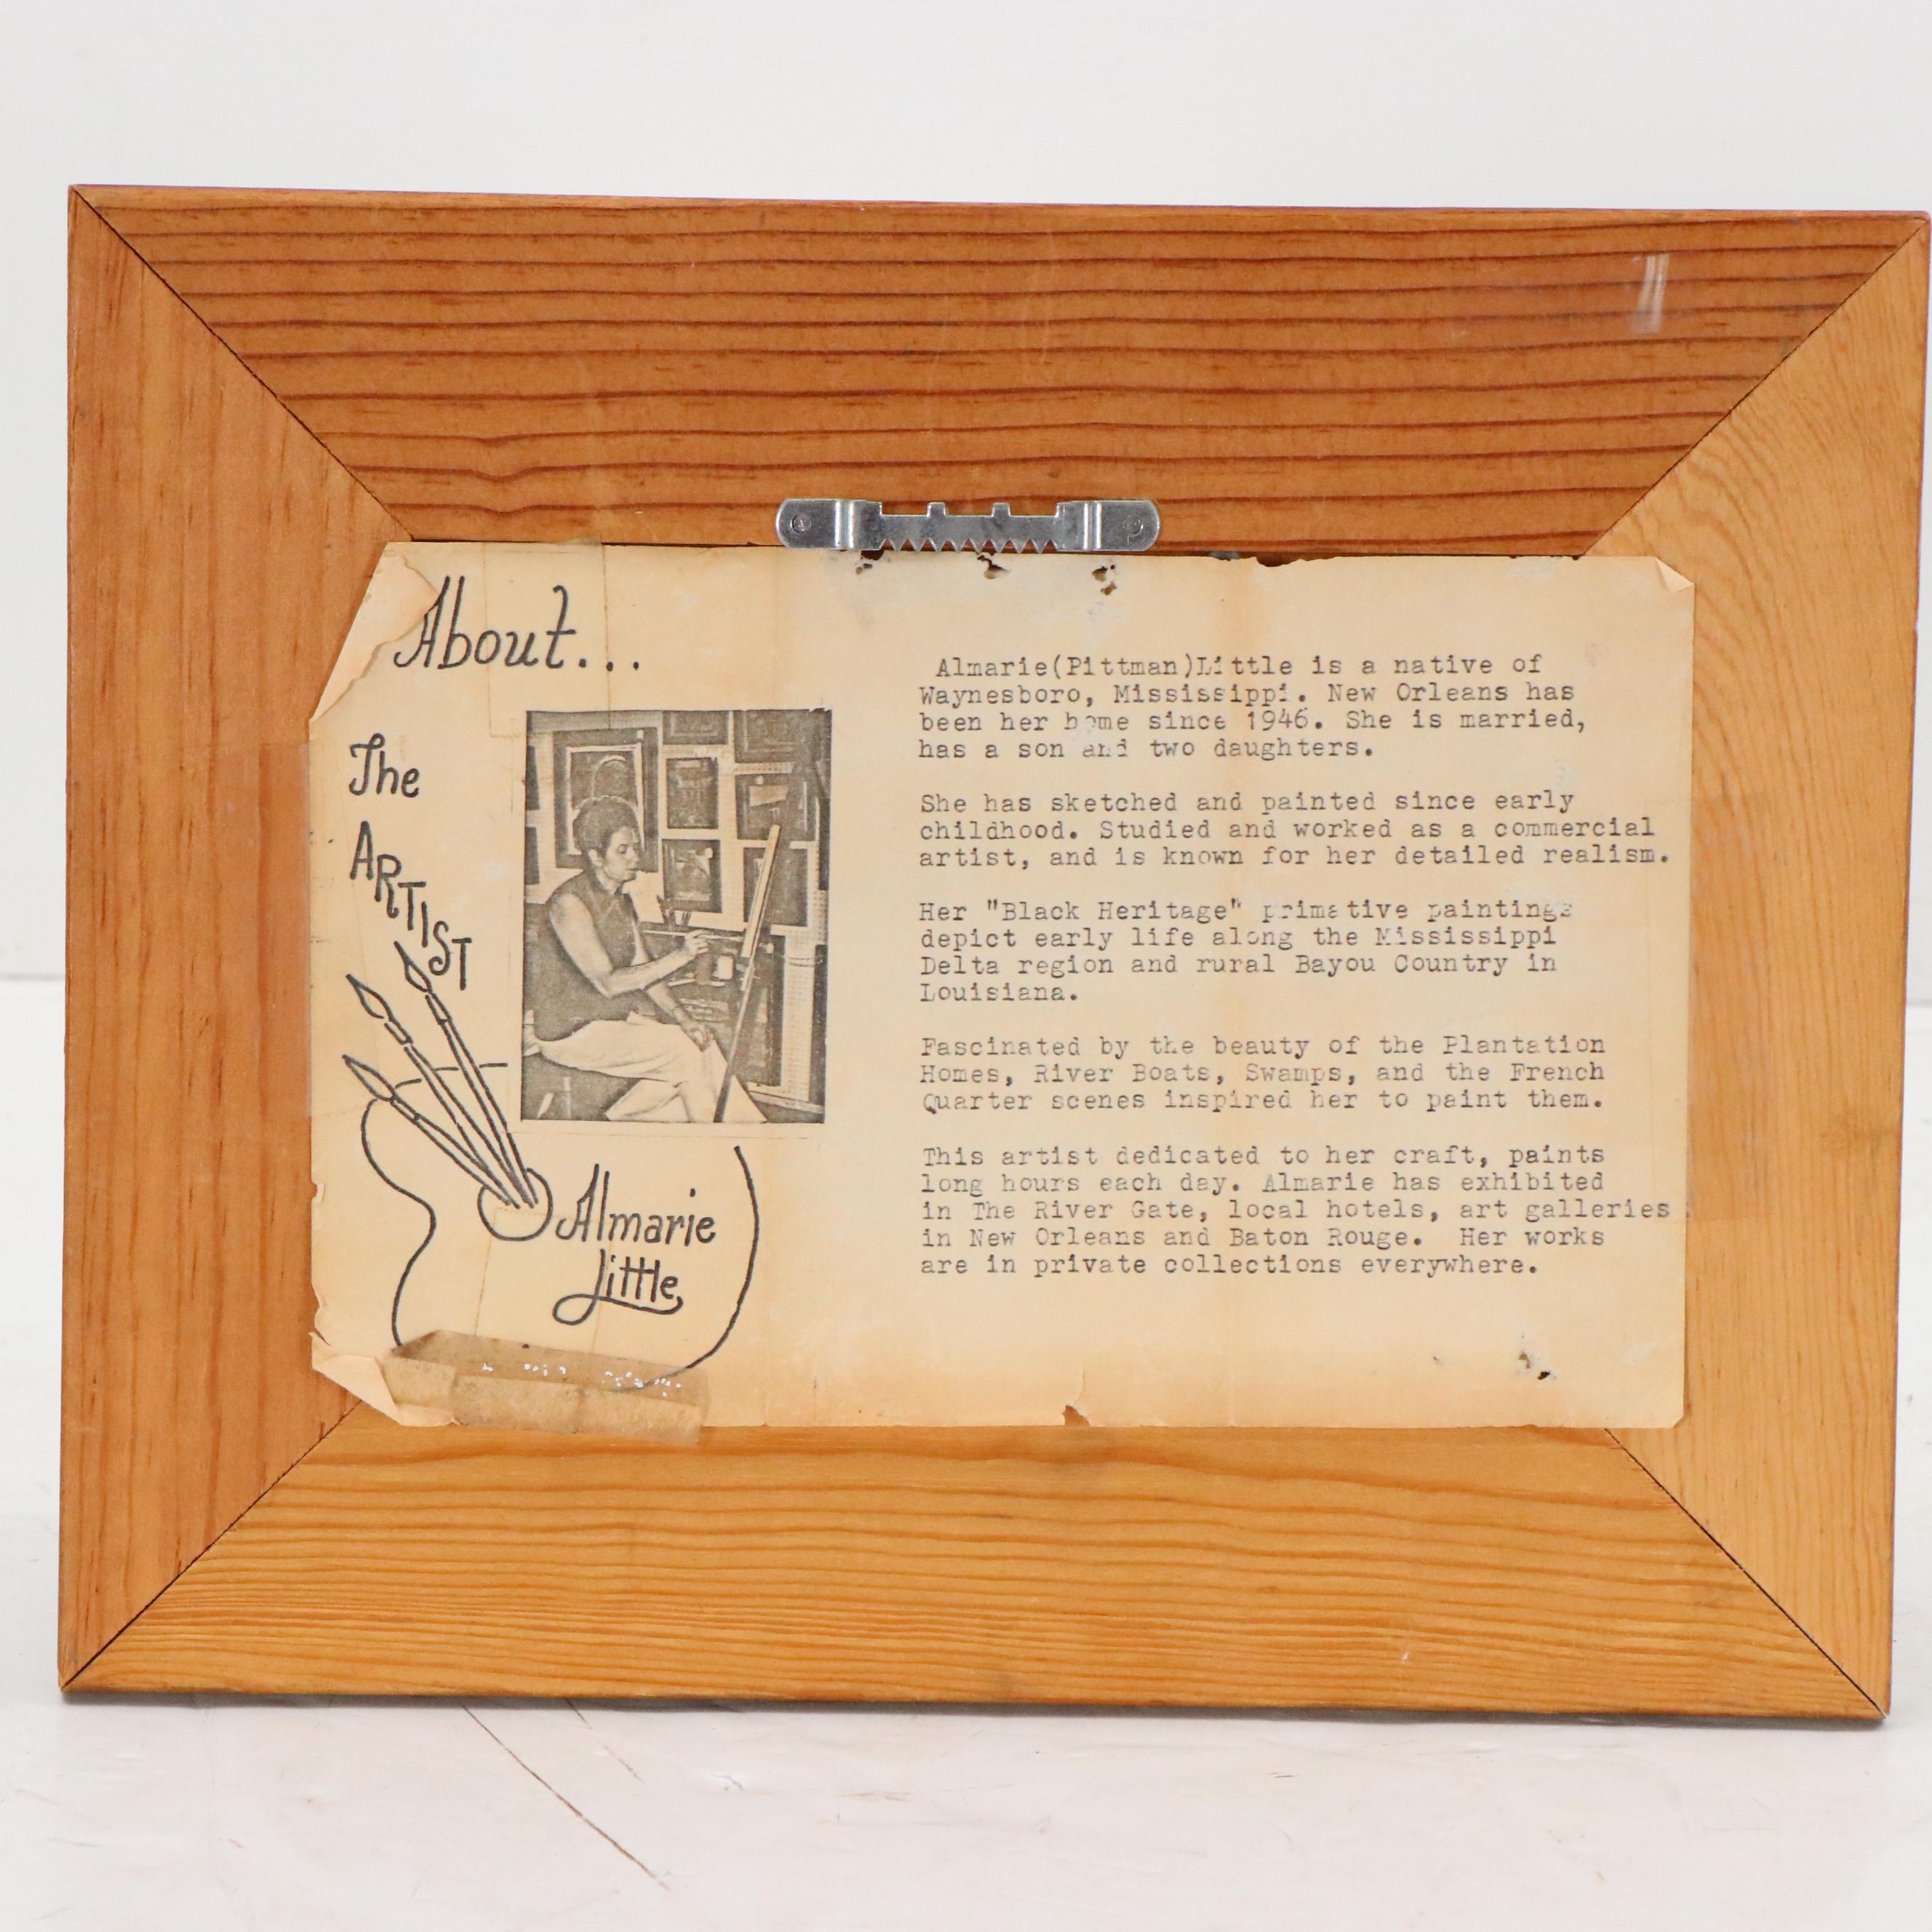 About...
The
ARTIST
Almarie
Little
Almarie(Pittman)Little is a native of
Waynesboro, Mississippi. New Orleans has
been her home since 1946. She is married,
has a son and two daughters.
She has sketched and painted since early
childhood. Studied and worked as a commercial
artist, and is known for her detailed realism.
Her "Black Heritage" primative paintings
depict early life along the Mississippi
Delta region and rural Bayou Country in
Louisiana.
Fascinated by the beauty of the Plantation
Homes, River Boats, Swamps, and the French
Quarter scenes inspired her to paint them.
This artist dedicated to her craft, paints
long hours each day. Almarie has exhibited
in The River Gate, local hotels, art galleries
in New Orleans and Baton Rouge. Her works
are in private collections everywhere.